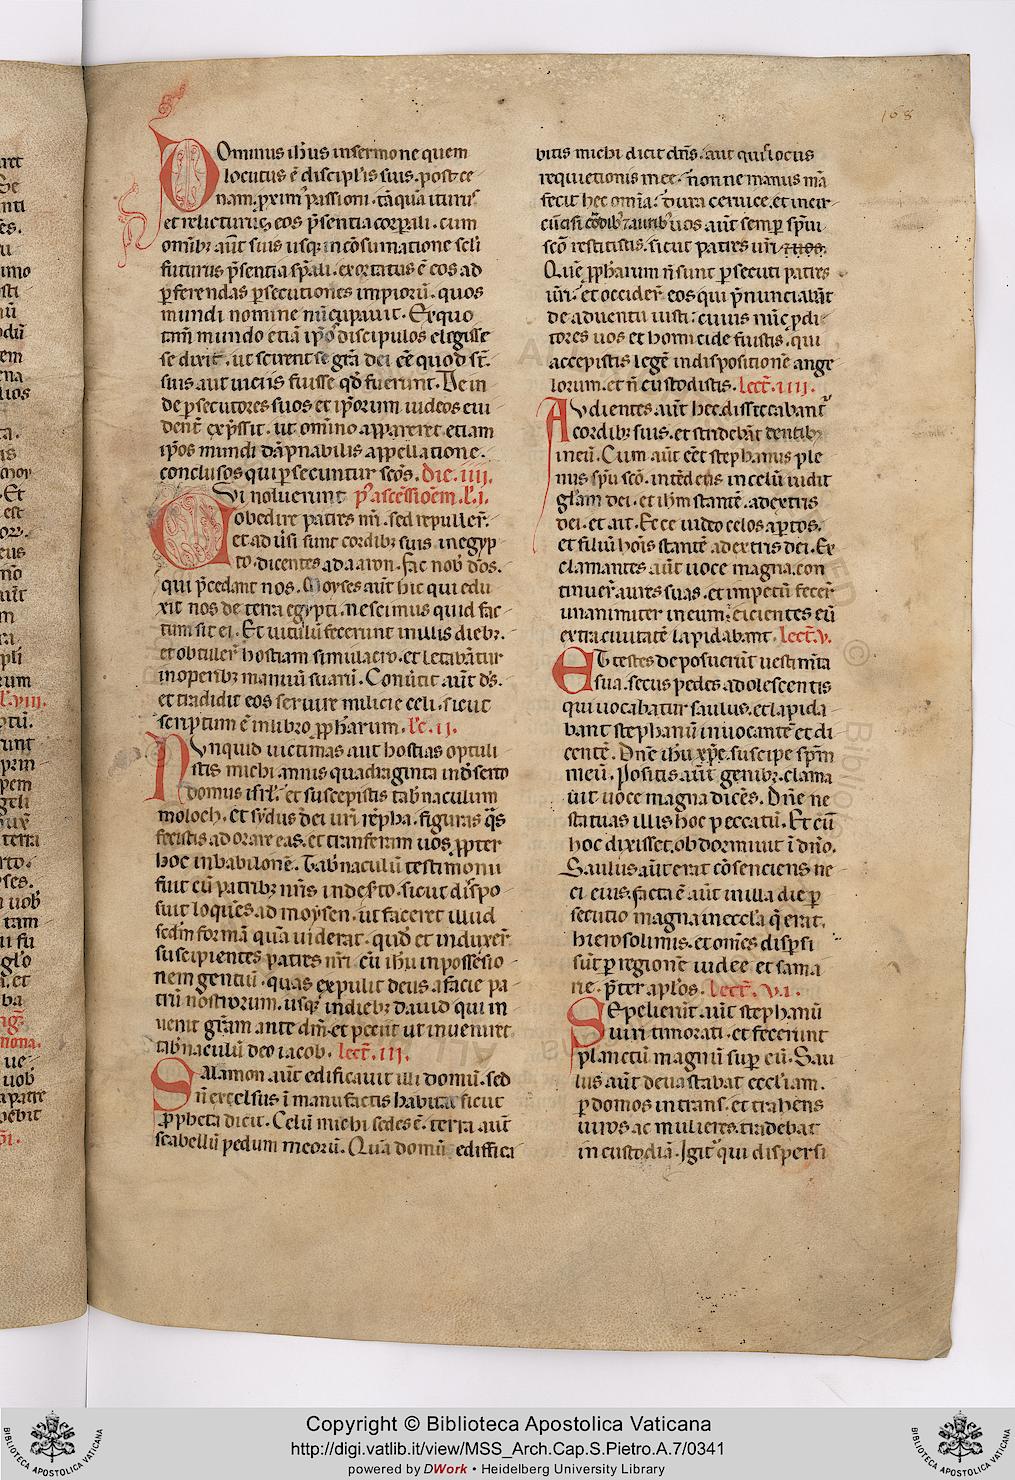 168
Dominus ih̄us in sermone quem
locutus ē discipl̄is suis. post ce
nam. proximꝰ passioni. tāquā iturꝰ
et relicturus eos p̄sentia corꝑali. cum
omībꝫ aūt suis usqꝫ in cōsumatione sc̄li
futurus p̄sentia sp̄ali. exortatus ē eos ad
ꝑferendas ꝑsecutiones impiorū. quos
mundi nomine nūcupauit. Ex quo
tam̄ mundo etiā ip̄os discipulos elegisse
se dixit. ut scirent se gr̄a dei eē quod st̄.
suis aut uiciis fuisse qd̄ fuerunt. De in
de ꝑsecutores suos et ip̄orum iudeos eui
dent̄ exp̄ssit. ut omīno appareret etiam
ip̄os mundi dāpnabilis appellatione.
conclusos qui ꝑsecuntur sc̄os. Die. iiii.
Qui noluerunt pꝰ ascēssiōem. l̄. i.
obedire patres nr̄i. sed repuller̄.
et adūsi sunt cordibꝫ suis in egyp
to. dicentes ad aaron. Fac nob̄ d̄os.
qui p̄cedant nos. Moyses aūt hic qui edu
xit nos de terra egypti. nescimus quid fac
tum sit ei. Et uitulū fecerunt in illis diebꝫ.
et obtuler̄ hostiam simulacro. et letabātur
in operibꝫ manuū suarū. Conūtit aūt d̄s.
et tradidit eos seruire milicie celi. sicut
scriptum ē in libro ꝓph̄arum. l̄c. ii.
Nunquid uictimas aut hostias optuli
stis michi annis quadraginta in dēserto
domus isrl̄. et suscepistis tab̄naculum
moloch. et sydus dei ur̄i repha. figuras q̄s
fecistis adorare eas. et tranferam uos ꝓpter
hoc in babilonē. Tab̄naculū testimonii
fuit cū patribꝫ nr̄is in des̄to. sicut dispo
suit loquēs ad moysen. ut faceret illud
sedm̄ formā quā uiderat. quod et induxer̄
suscipientes patres nr̄i cū ih̄u in possesio
nem gentiū. quas expulit deus a facie pa
trū nostrorum. usqꝫ in diebꝫ dauid qui in
uenit gr̄am ante dm̄. et peciit ut inueniret
tab̄naculū deo iacob. lect̄. iii.
Salamon aūt edificauit illi domū. sed
n̄ excelsus ī manufactis habitat sicut
ꝓpheta dicit. Celū michi sedes ē. terra aūt
scabellū pedum meorū. Quā domū ediffica
bitis michi dicit dn̄s. aut quis locus
requietionis mee. nonne manus mā
fecit hec omīa. dura ceruice. et incir
cūcisi cordibꝫ et auribꝫ uos aūt semꝑ sp̄ui
scō restitistis. sicut patres ur̄i
Quē ꝓph̄arum n̄ sunt ꝑsecuti patres
ur̄i. et occider̄ eos qui p̄nunciabāt
de aduentu iusti. cuius nūc ꝓdi
tores uos et homicide fuistis. qui
accepistis legē in dispositionē ange
lorum. et n̄ custodistis. lect̄. iiii.
Audientes aūt hec. dissecabantꝰ
cordibꝫ suis. et stridebāt dentibꝫ
in eū. Cum aūt eēt stephanus ple
nus sp̄u scō. intēdens in celū uidit
gl̄am dei. et ih̄m stantē. a dextris
dei. et ait. Ecce uideo celos aꝑtos.
et filiū hoīs stantē a dextris dei. Ex
clamantes aūt uoce magna. con
tinuer̄ aures suas. et impetū fecer̄
unanimiter in eum. eicientes eū
extra ciuitatē lapidabant. lect̄. v.
Et testes deposuerūt uestimīta
sua. secus pedes adolescentis
qui uocabatur saulus. et lapida
bant stephanū inuocantē et di
centē. Dn̄e ih̄u xp̄e. suscipe sp̄m
meū. Positis aūt genibꝫ. clama
uit uoce magna dicēs. Dn̄e ne
statuas illis hoc peccatū. Et cū
hoc dixisset. obdormiuit ī dn̄o.
Saulus aūt erat cōsenciens ne
ci eius. facta ē aūt in illa die ꝑ
secutio magna in eccl̄a q̄ erat.
hierosolimis. et omēs disꝑsi
sūt ꝑ regionē iudee et sama
rie. p̄ter apl̄os. lect̄. v. i.
Sepelierūt aūt stephanū
uiri timorati. et fecerunt
planctū magnū suꝑ eū. Sau
lus aūt deuastabat eccl̄iam.
ꝑ domos intrans. et trahens
uiros ac mulieres. tradebat
in custodiā. Igitꝰ qui dispersi
Copyright © Biblioteca Apostolica Vaticana
http://digi.vatlib.it/view/MSS_Arch.Cap.S.Pietro.A.7/0341
powered by DWork • Heidelberg University Library
BIBLIOTECA APOSTOLICA VATICANA
BIBLIOTECA APOSTOLICA VATICANA